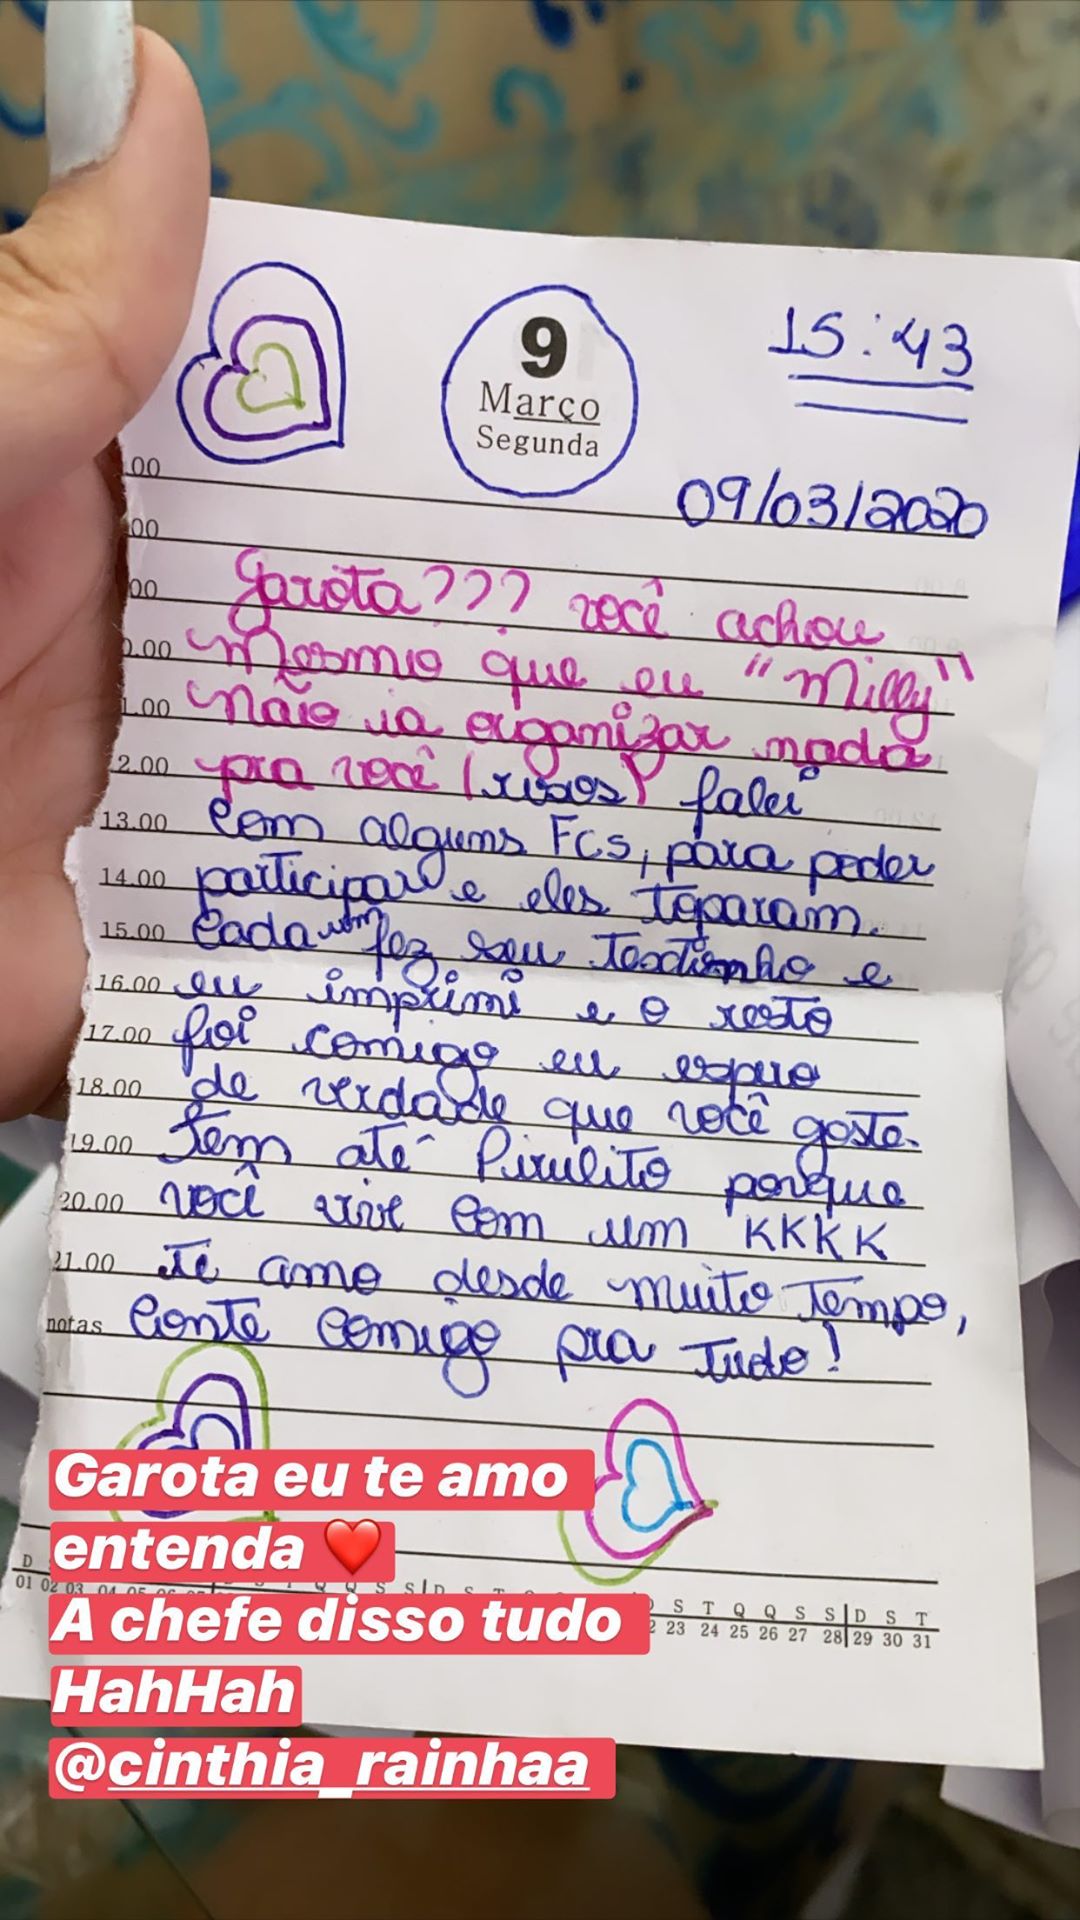 15:43
9
Março
Segunda
09/03/2020
00
00
00
Garota??? você achou
0.00 Mesmo que eu "Milly"
1.00 não ia organizar nada
2.00 pra você (risos) falei
13.00 com alguns FCs, para poder
14.00 participar e eles toparam.
15.00 Cada um fez seu textinho e
16.00 eu imprimi e o resto
17.00 foi comigo eu espero
18.00 de verdade que você goste.
19.00 Tem até Pirulito porque
20.00 você vive com um KKKK
21.00 Te amo desde muito Tempo,
notas Conte comigo pra tudo!
Garota eu te amo
entenda ❤️
A chefe disso tudo
HahHah
@cinthia_rainhaa
D S T Q Q S S D S T
01 02 03 04 05 06 23 24 25 26 27 28 29 30 31